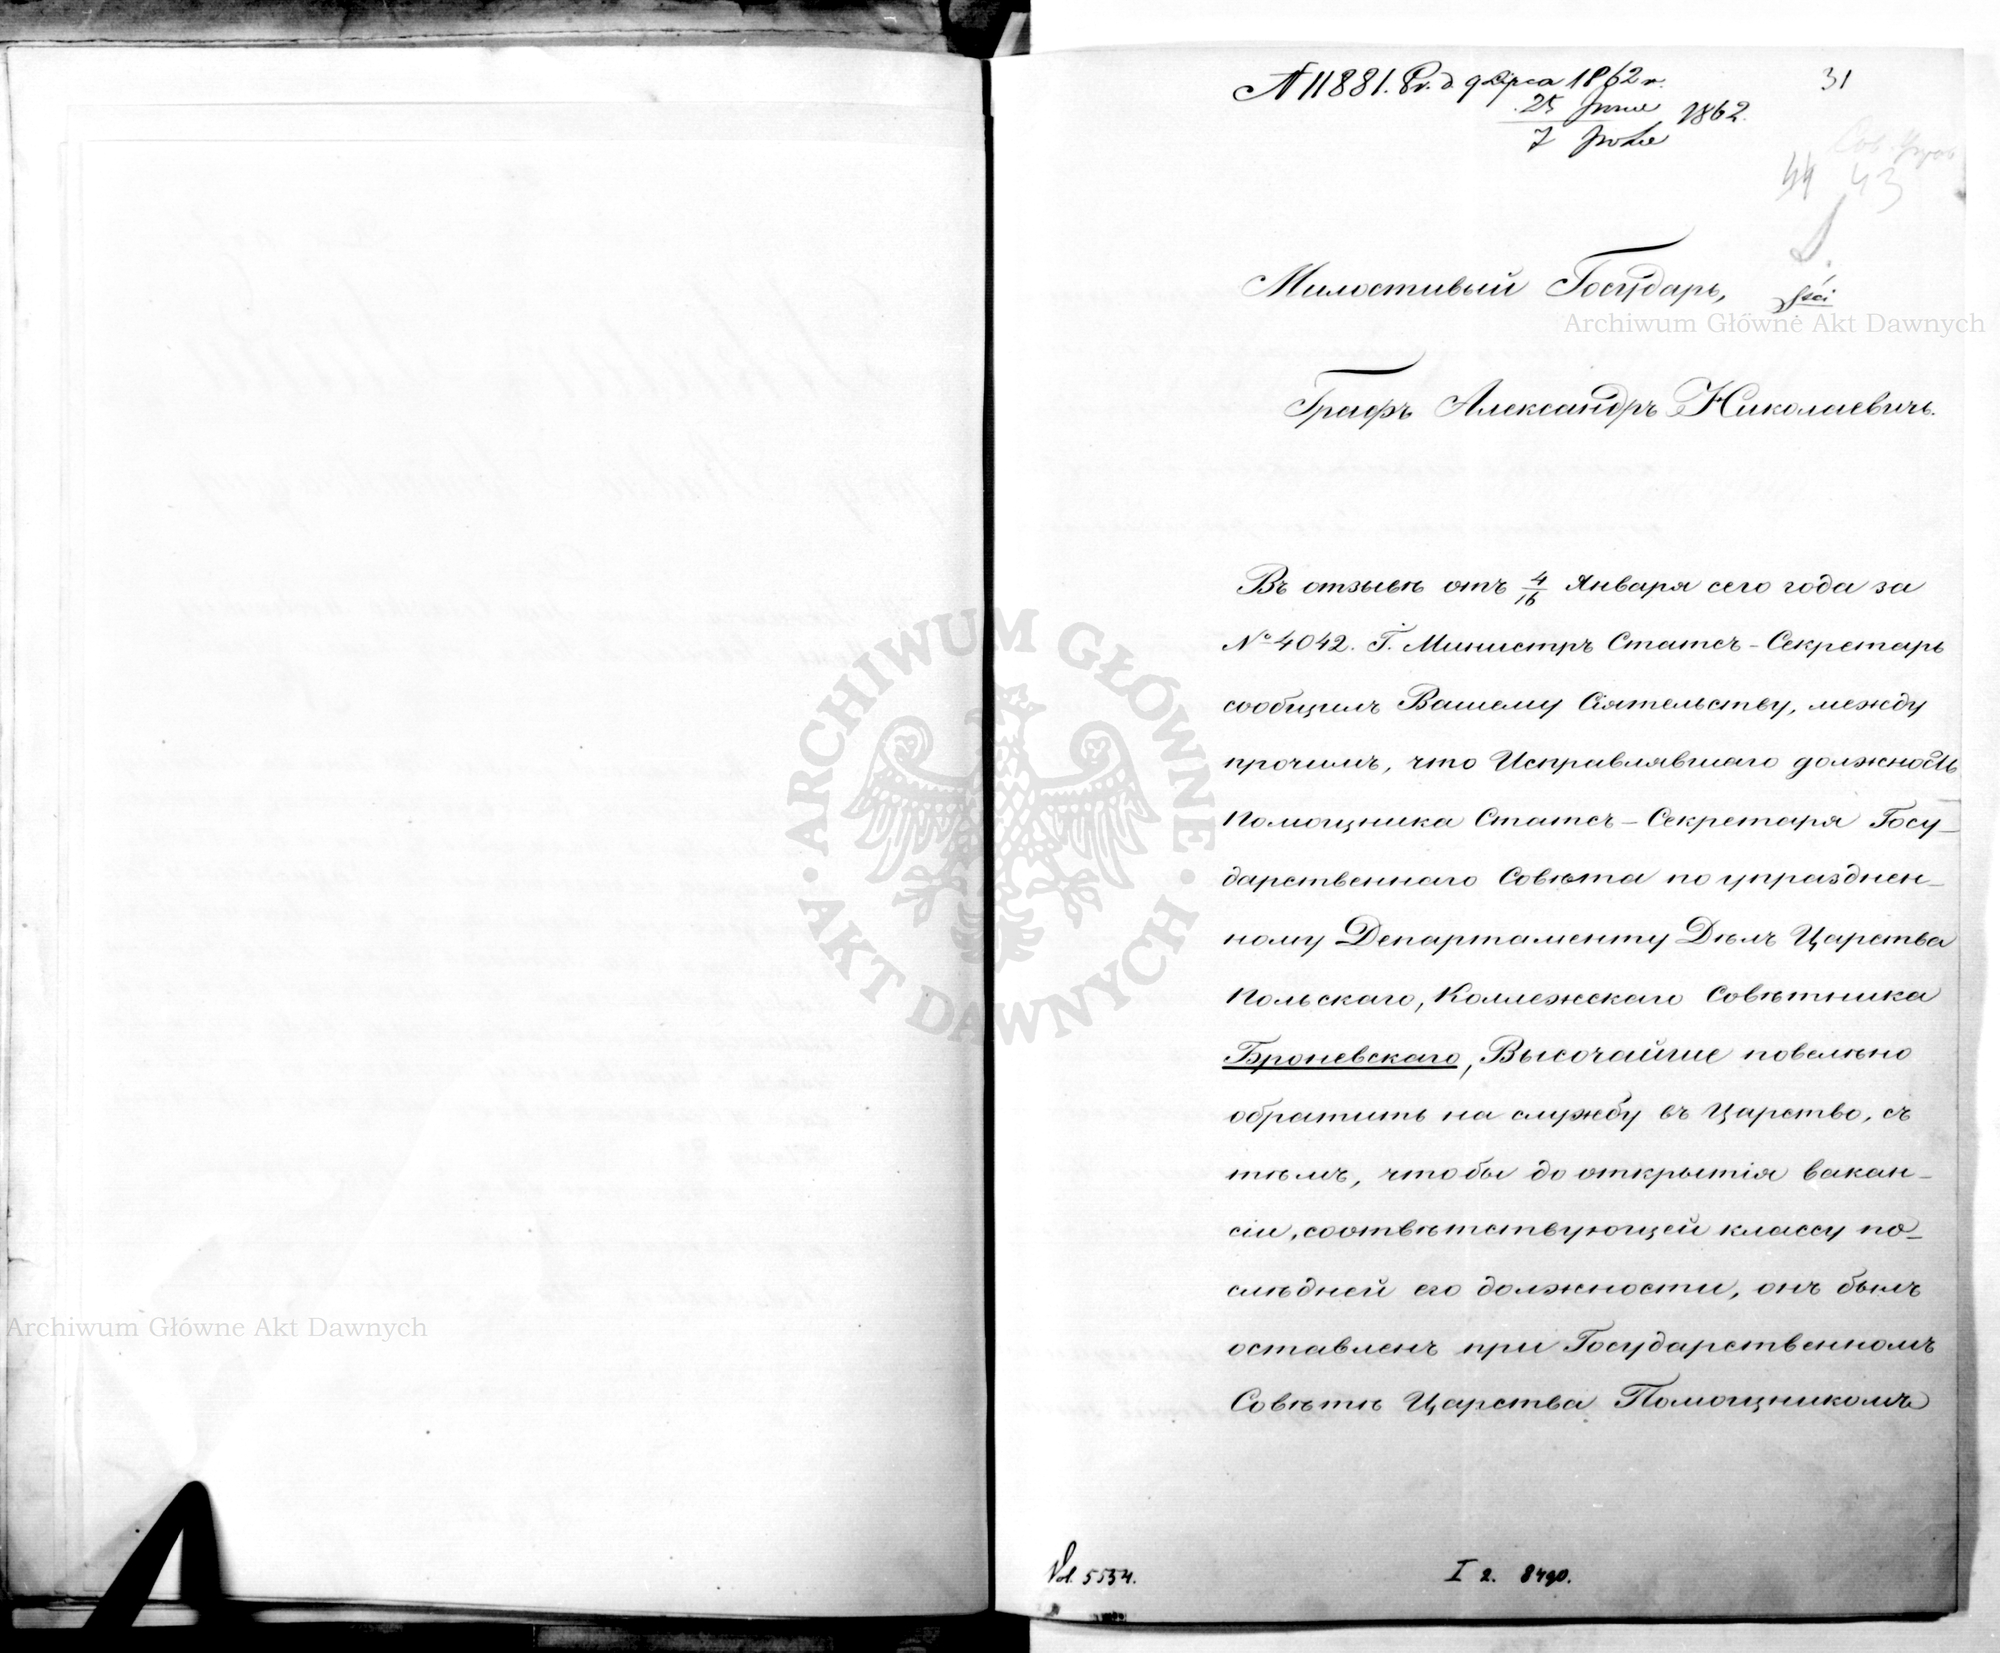 № 11881. Pr. d. 9 Lipca 1862 r.
31
25 Іюня
7 Іюля 1862.
44 43
Милостивый Государь,
Графъ Александръ Николаевичъ.
Въ отзывѣ отъ 4/16 Января сего года за
№ 4042. Г. Министръ Статсъ-Секретарь
сообщилъ Вашему Сіятельству, между
прочимъ, что Исправлявшаго должность
Помощника Статсъ-Секретаря Госу-
дарственнаго Совѣта по упразднен-
ному Департаменту Дѣлъ Царства
Польскаго, Коллежскаго Совѣтника
Броневскаго, Высочайше повелѣно
обратить на службу въ Царство, съ
тѣмъ, чтобы до открытія вакан-
сіи, соотвѣтствующей классу по-
слѣдней его должности, онъ былъ
оставленъ при Государственномъ
Совѣтѣ Царства Помощникомъ
Vol. 5534.
I 2. 8490.
Archiwum Główne Akt Dawnych
Archiwum Główne Akt Dawnych
ARCHIWUM GŁÓWNE · AKT DAWNYCH ·